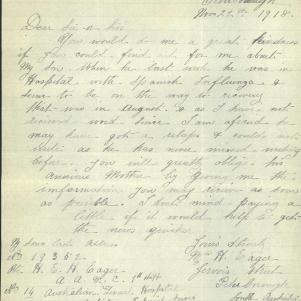 Peterborough
Nov 22nd 1918.
Dear Sir
You would do me a great kindness
if you could find out for me about
My Son. When he last wrote he was in
Hospital with Spanish Influenza &
seem to be on the way to recovery
that was in August. & as I have not
received word since I am afraid he
may have got a relaps & could not
write as he has never missed writing
before. you will greatly oblige his
Anxious Mother by Giving me the
information you may receive as soon
as possible. I dont mind paying a
little if it would help to get
the news quicker
My Sons last address Yours Sincerely
No 19352 Mrs H. Eager
H. E. H. Eager Street
A. A. M. C. Peterborough
No 14 Australian General Hospital South Australia